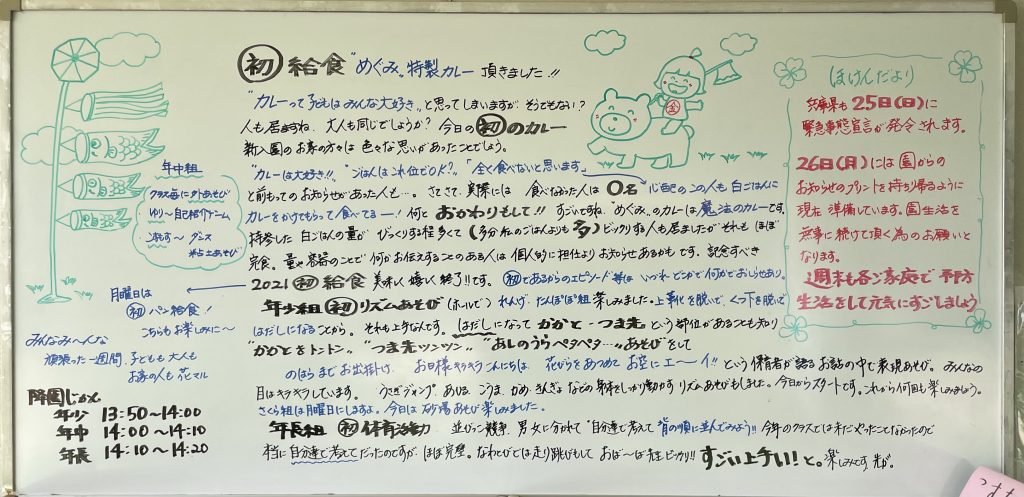 初 給食 "めぐみ" 特製カレー 頂きました!!
"カレーって子どもはみんな大好き"と思ってしまいますが そうでもない?
人も居ますね、大人も同じでしょうか? 今日の 初 のカレー
新入園のお家の方々は 色々な思いがあったことでしょう。
"カレーは大好き!!" "ごはんはこれ位でOK?" 「全く食べないと思います」
と前もってのお知らせがあった人も…。さてさて、実際には 食べなかった人は 0名"心配のこの人も 白ごはんに
カレーをかけてもらって食べてるー! 何と おかわりもして!! すごいですね、"めぐみ"のカレーは魔法のカレーです。
持参した 白ごはんの量が びっくりする程多くて(多分 のごはんよりも 多)ビックリする人も居ましたがそれも ほぼ
完食。量や容器のことで 何かお伝えすることのある人は 個人的に担任よりお知らせあるかもです、記念すべき
2021 初 給食 美味しく嬉しく終了!!です。 初であるからのエピソード等は いつか どこかで何かでおしらせあり。
年少組 初 リズムあそび (ホールで) れんげ、たんぽぽ組 楽しみました・上靴を脱いで、くつ下を脱いで
はだしになることから。それも上手なんです。はだしになって かかと・つま先 という部位があることも知り
"かかとをトントン" "つま先ツンツン" "あしのうらペタペタ…"あそびをして
のはらまでお出掛け、お日様キラキラ こんにちは、花びらをあつめて お空にエーイ!! という保育者が語るお話の中で表現あそび。みんなの
目はキラキラしています。 うさぎジャンプ、あひる、こうま、かめ、きんぎょなどの 身体をしっかり動かす リズムあそびもしました。今日からスタートです。これから何回も楽しみましょう。
さくら組は月曜日にしますよ。今日は 砂場あそび楽しみました。
年長組 初 体育活動 並びっこ競争、男女に分かれて"自分達で考えて 背の順に並んでみよう!!"今年のクラスではまだやったことなかったので
本当に自分達で考えてだったのですが、ほぼ完璧。なわとびでは走り跳びもして おばーば先生ビックリ!! すごい上手い!と。楽しみです 先が。
年中組
クラス毎に外あそび
ゆりー自己紹介ゲーム
すみれーダンス
粘土あそび
月曜日は
初 パン給食!
こちらもお楽しみに〜
みんなみーんな
頑張った一週間、子どもも大人も
お家の人も花マル
降園じかん
年少 13:50〜14:00
年中 14:00〜14:10
年長 14:10〜14:20
金
ほけんだより
兵庫県も 25日(日)に
緊急事態宣言が発令されます。
26日(月)には 園からの
お知らせのプリントを持ち帰るように
現在 準備しています。園生活を
無事に続けて頂く為のお願いと
なります。
週末も各ご家庭で 予防
生活をして元気にすごしましょう